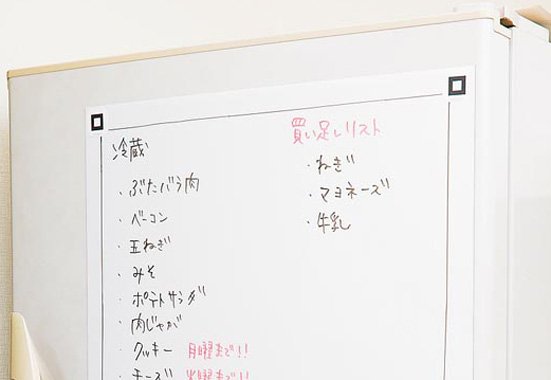 冷蔵
・ぶたバラ肉
・ベーコン
・玉ねぎ
・みそ
・ポテトサラダ
・肉じゃが
・クッキー 月曜まで!!
・チーズ 火曜まで!!
買い足しリスト
・ねぎ
・マヨネーズ
・牛乳